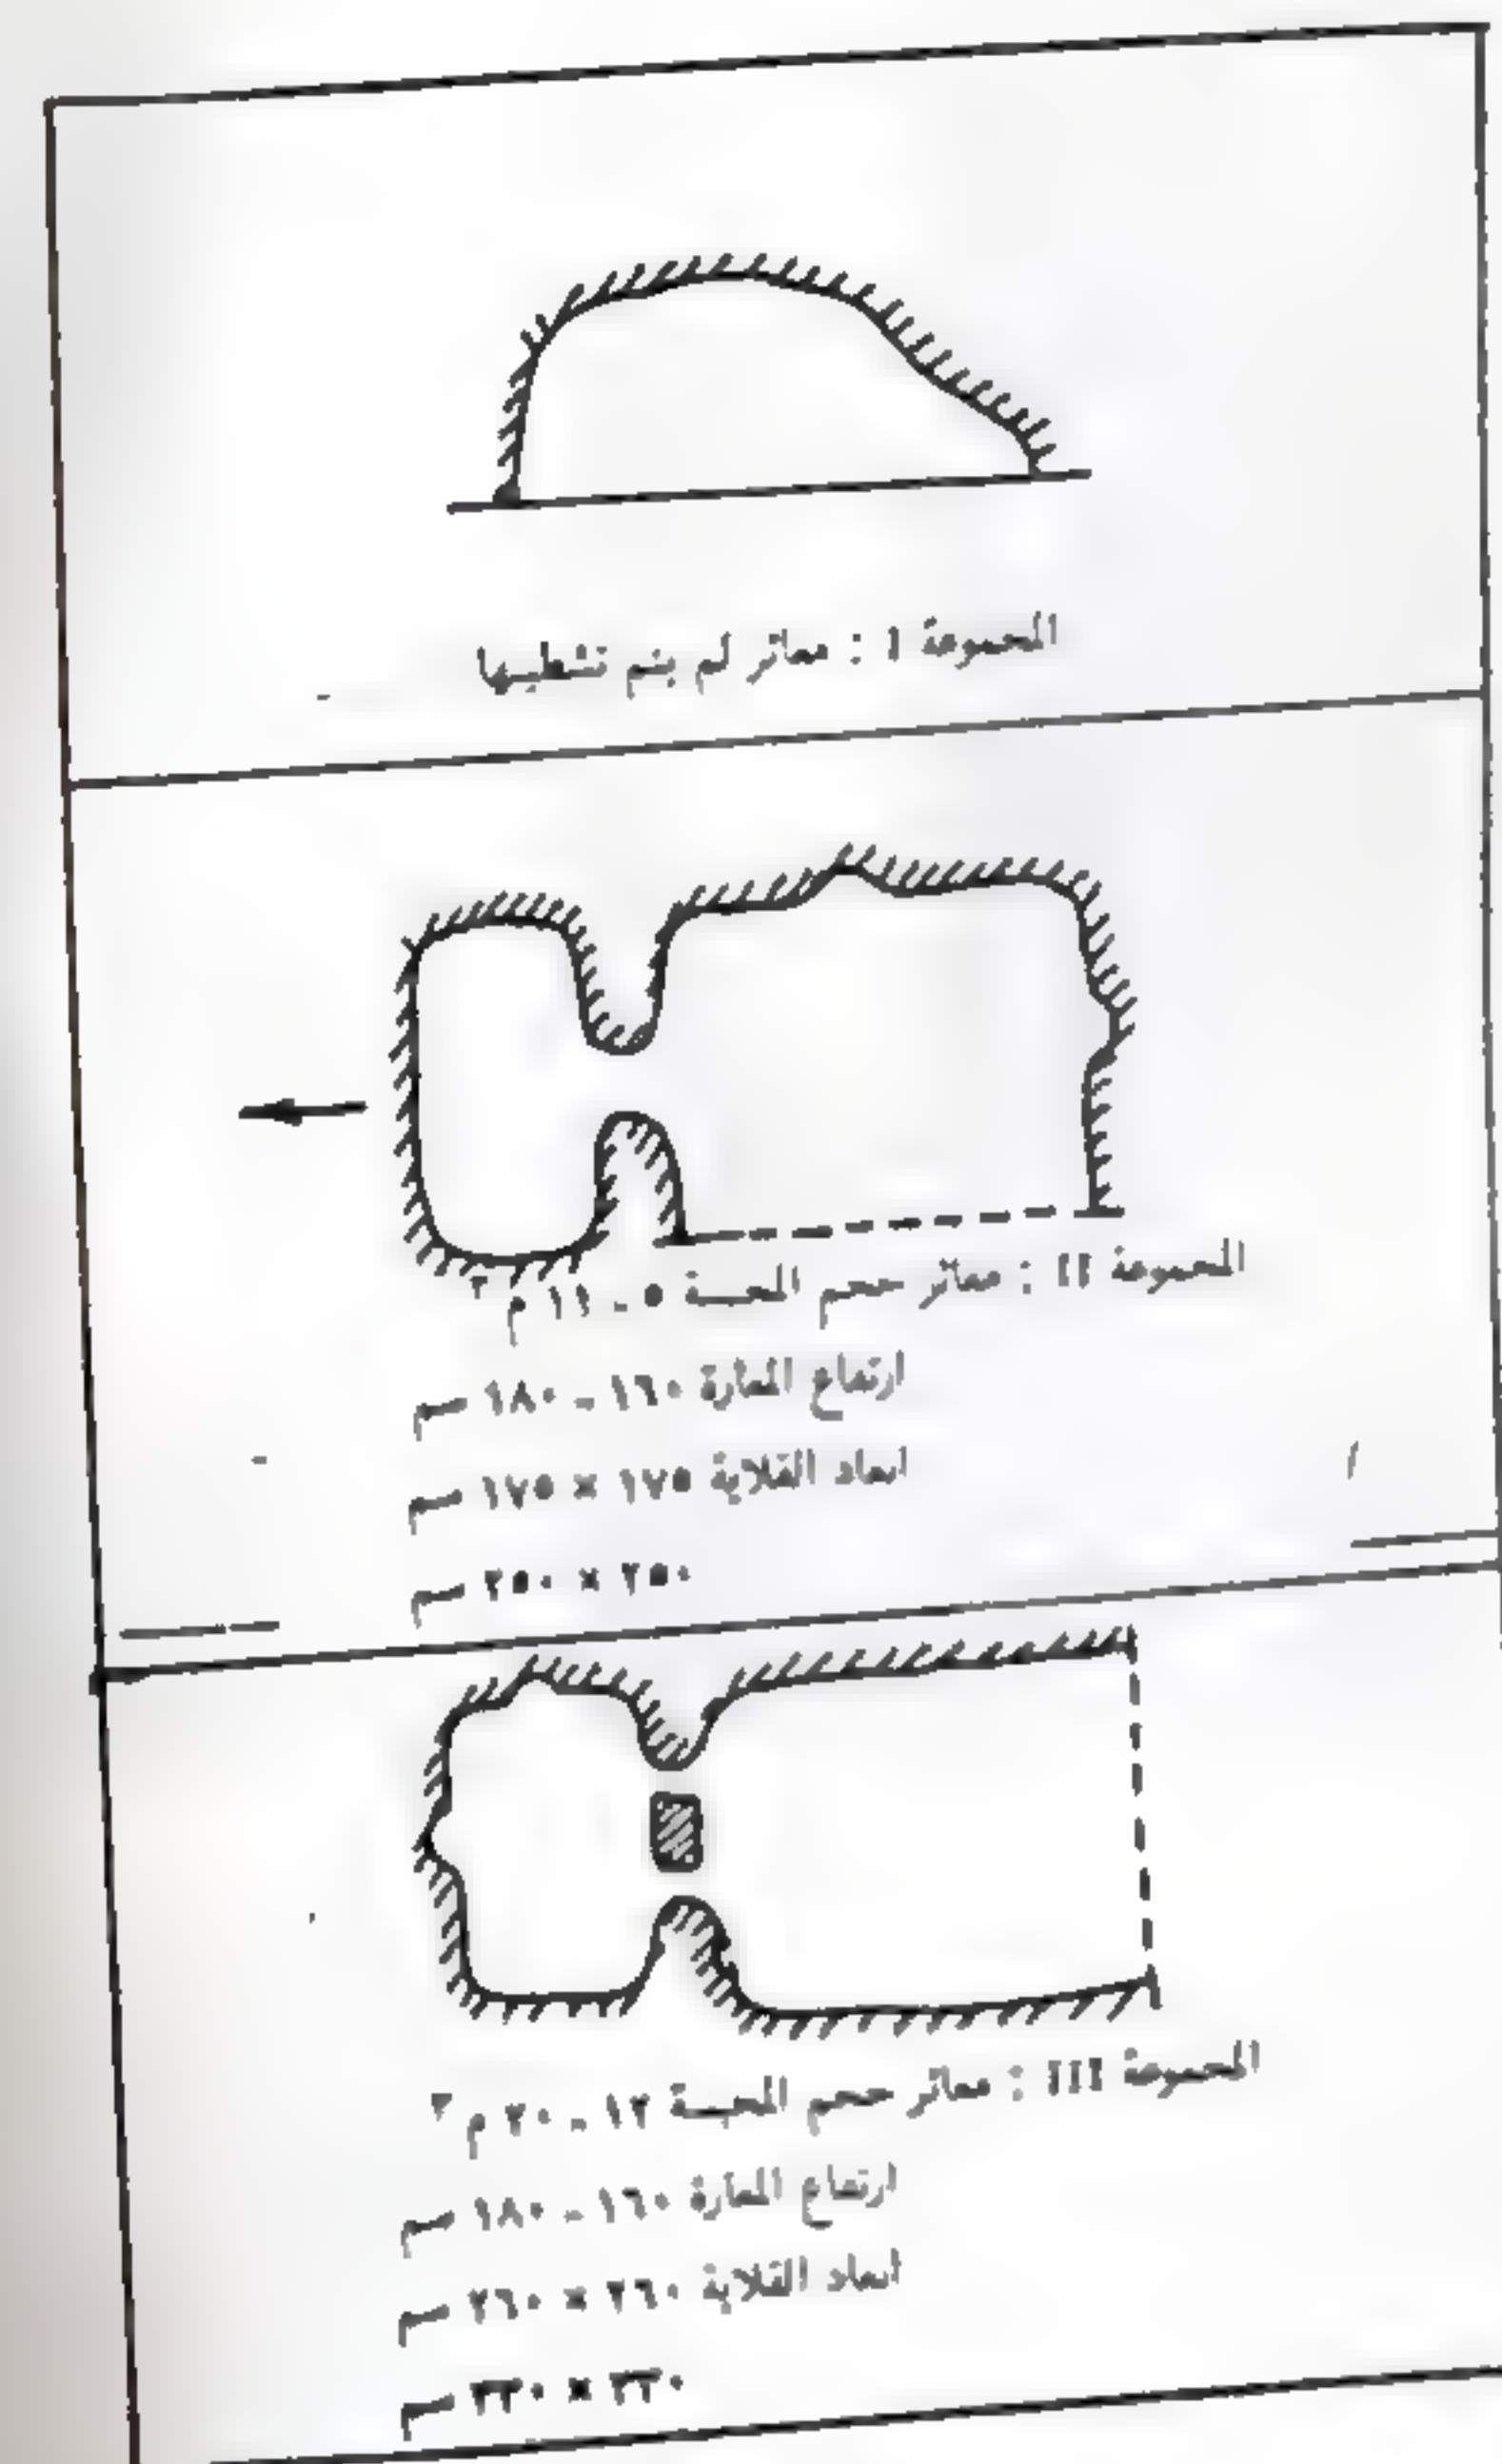 المجموعة I : معائر لم يتم تشطيبها
المجموعة II : معائر حجم المحبسة ٥ - ١١ م ٣
ارتفاع المغارة ١٦٠ - ١٨٠ سم
ابعاد القلاية ١٧٥ × ١٧٥ سم
٢٥٠ × ٢٥٠ سم
المجموعة III : معائر حجم المحبسة ١٢ - ٢٠ م ٣
ارتفاع المغارة ١٦٠ - ١٨٠ سم
ابعاد القلاية ٢٦٠ × ٢٦٠ سم
٣٣٠ × ٣٣٠ سم